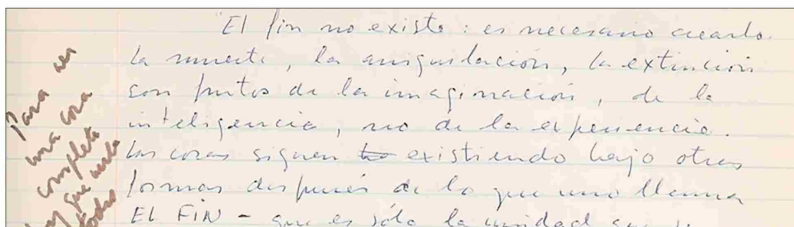 El fin no existe: es necesario crearlo.
La muerte, la aniquilación, la extinción
son frutos de la imaginación, de la
inteligencia, no de la experiencia.
Las cosas siguen existiendo bajo otras
formas después de lo que uno llama
EL FIN - que es sólo la unidad que
Para ver
una cosa
completa
hay que verla